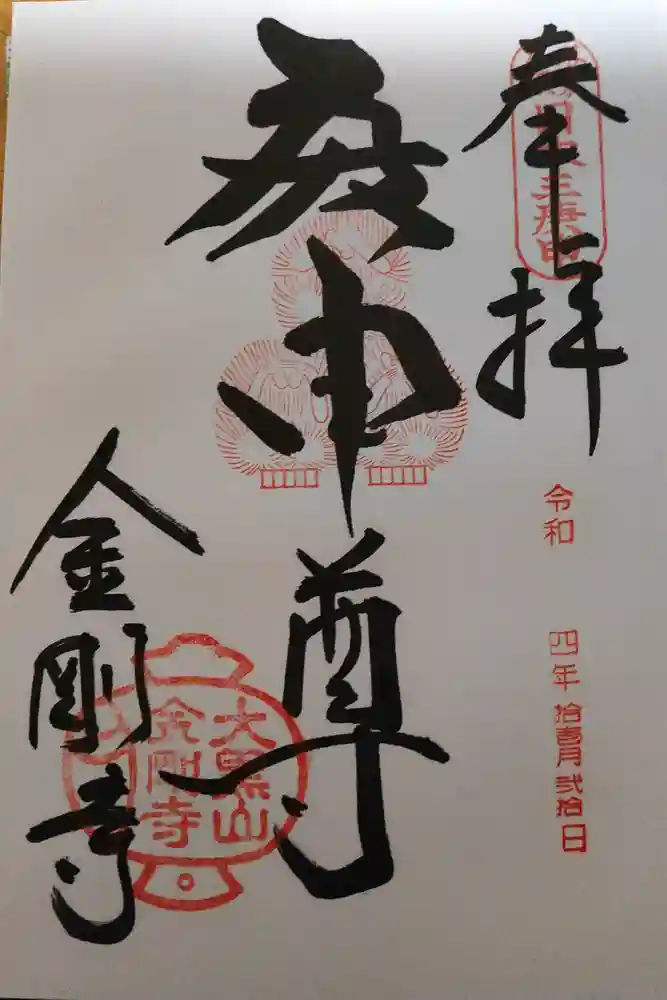 奉拝
三庚申
令和 四年 拾壱月 弐拾日
庚申尊
金剛寺
大黒山
金剛寺